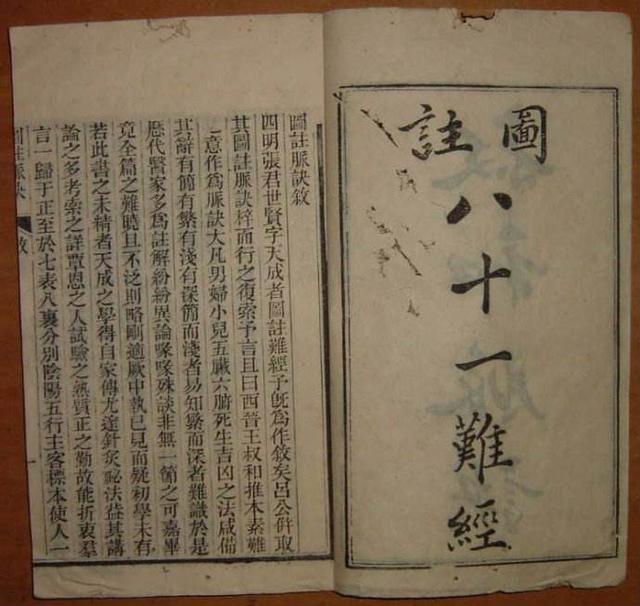 圖註
八十一難經
圖註脈訣敘
四明張君世賢字天成者圖註難經予旣爲作敘矣呂公併取
其圖註脈訣梓而行之復索予言且曰西晉王叔和推本素難
意作爲脈訣大凡男婦小兒五臟六腑死生吉凶之法咸備
其辭有簡有繁有淺有深簡而淺者易知繁而深者難識於是
歷代醫家多爲註解紛紛異論喙喙殊談非無一篩之可嘉畢
竟全篇之難曉且不泛則略剛適厥中執已見而疑初學未有
若此書之未精者天成之學得自家傳尤逵針灸祕法益其講
論之多考索之詳覃恩之人試驗之熟質正之勤故能折衷羣
言一歸于正至於七表八裏分別陰陽五行主客標本使人一
圖註脈訣 敘
一